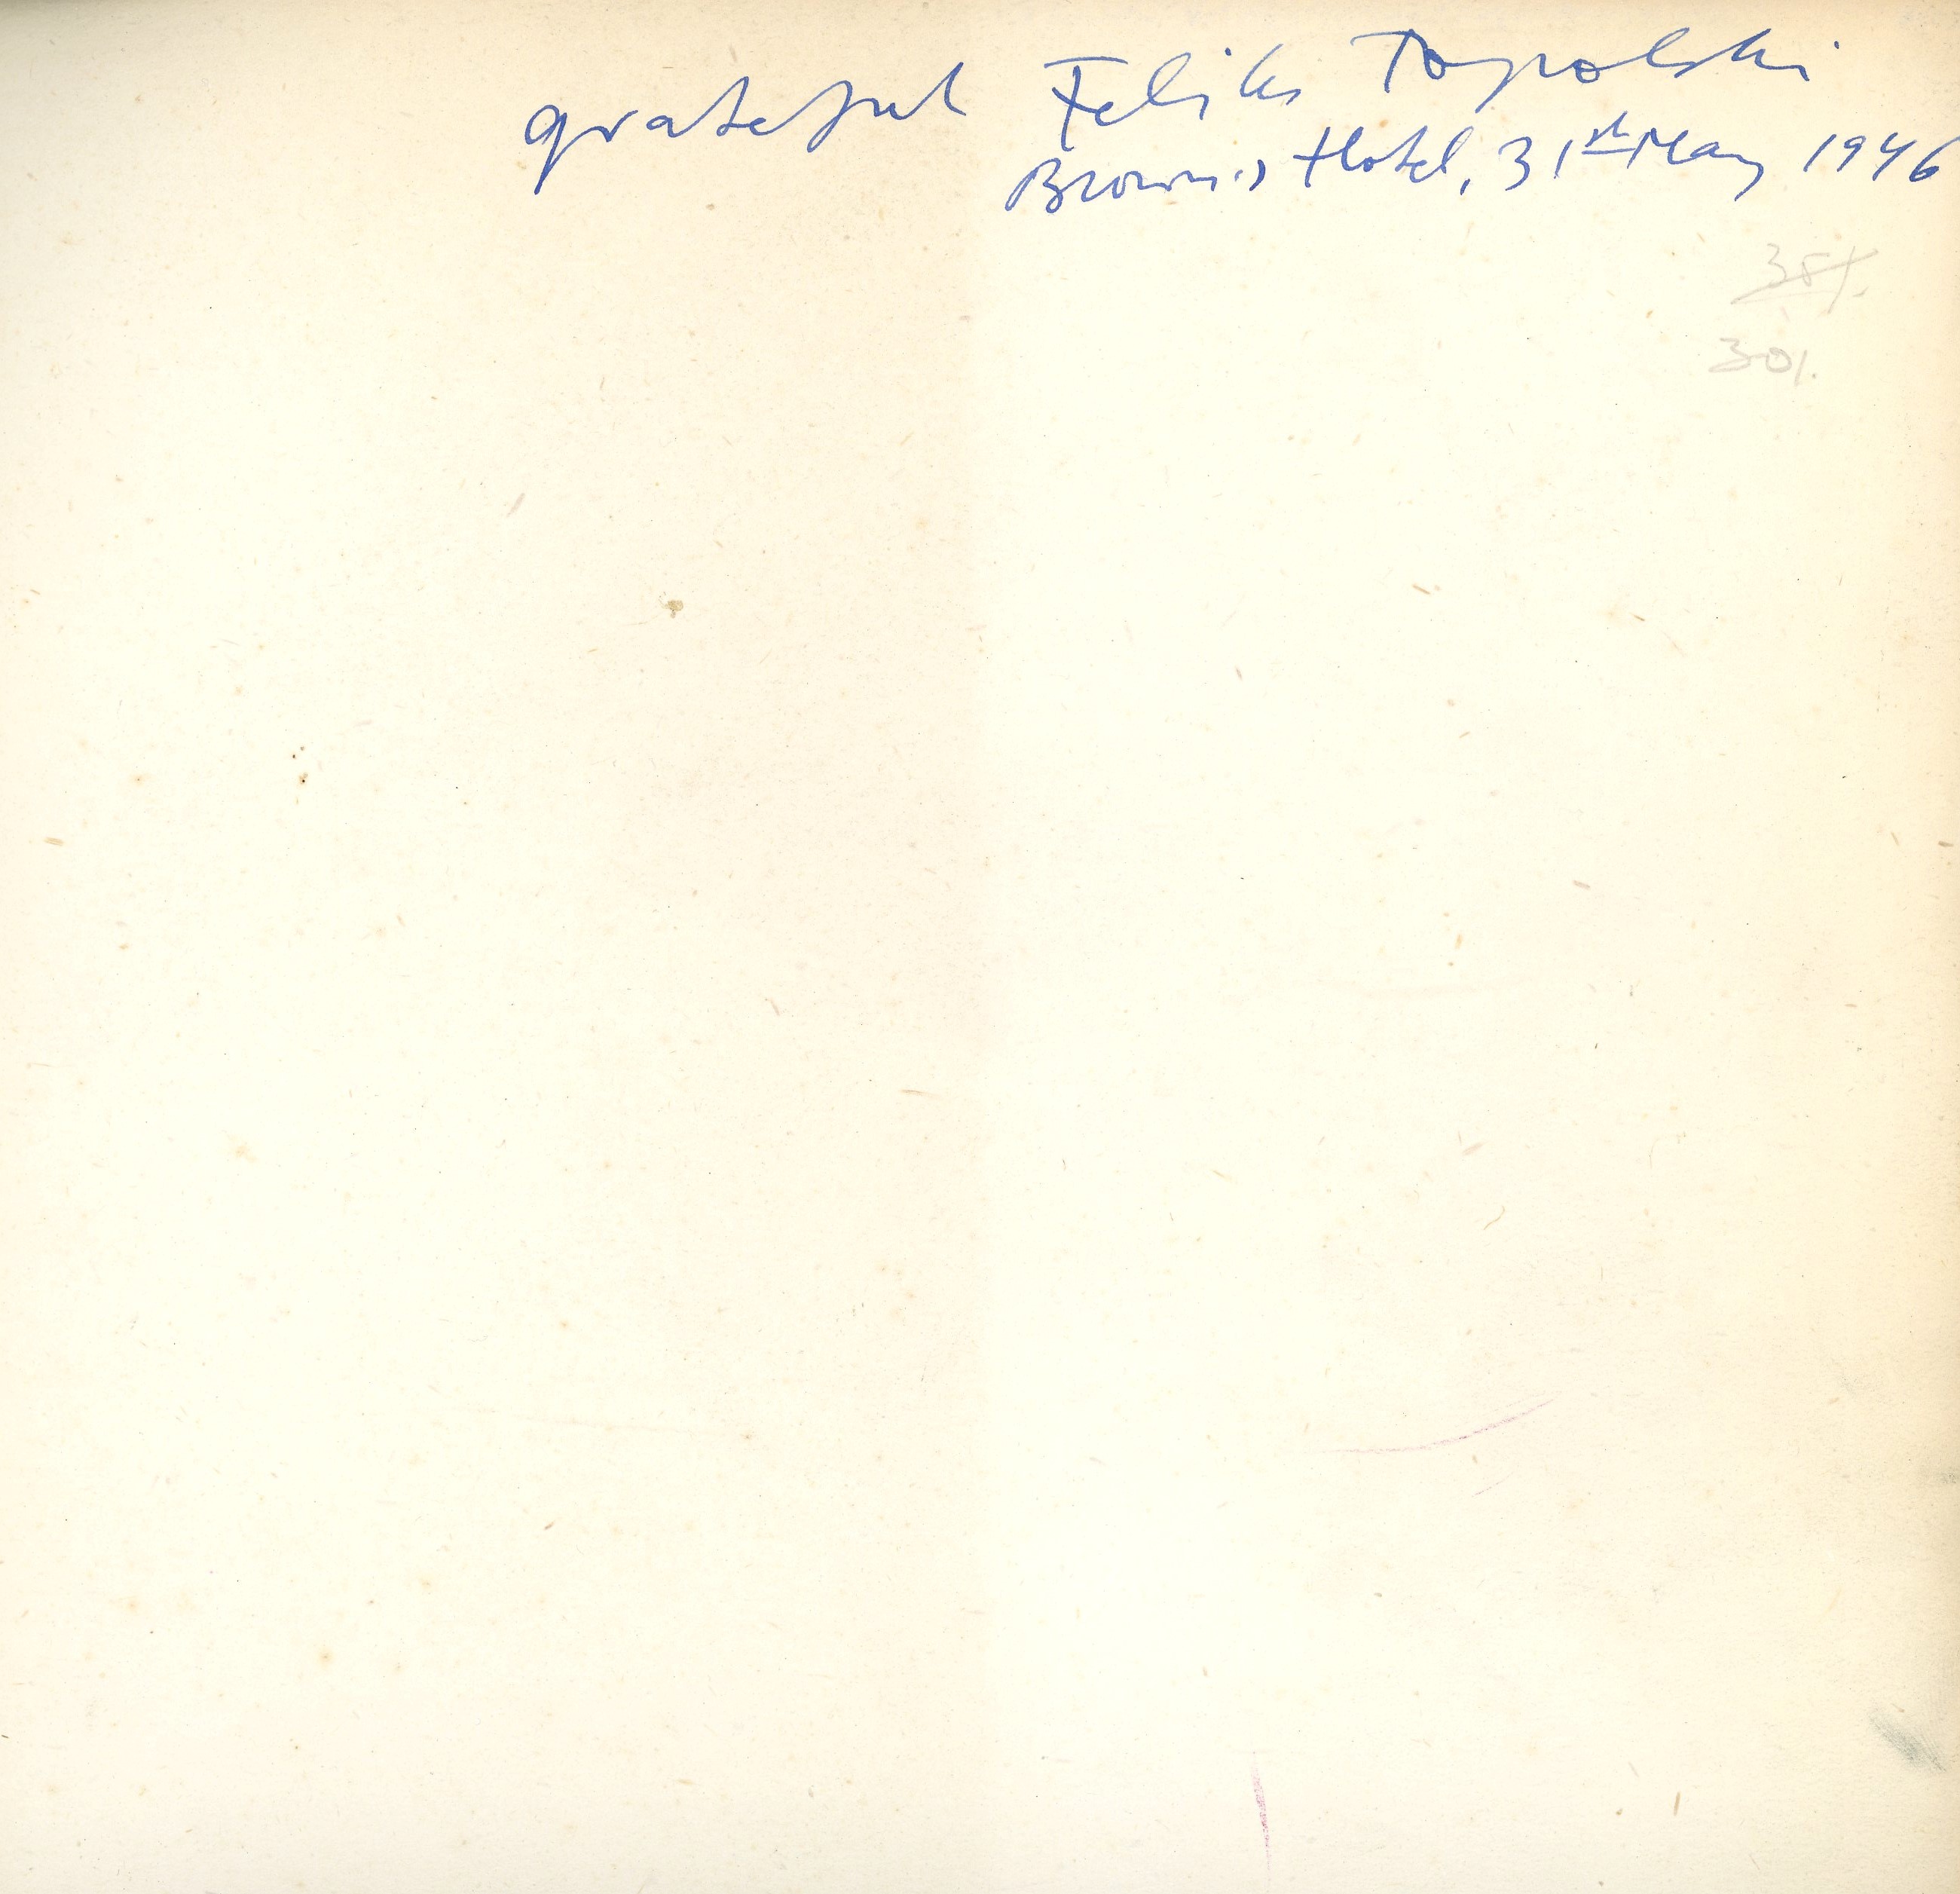 grateful Feliks Topolski
Brown's Hotel, 31st May 1946
35/.
30/.